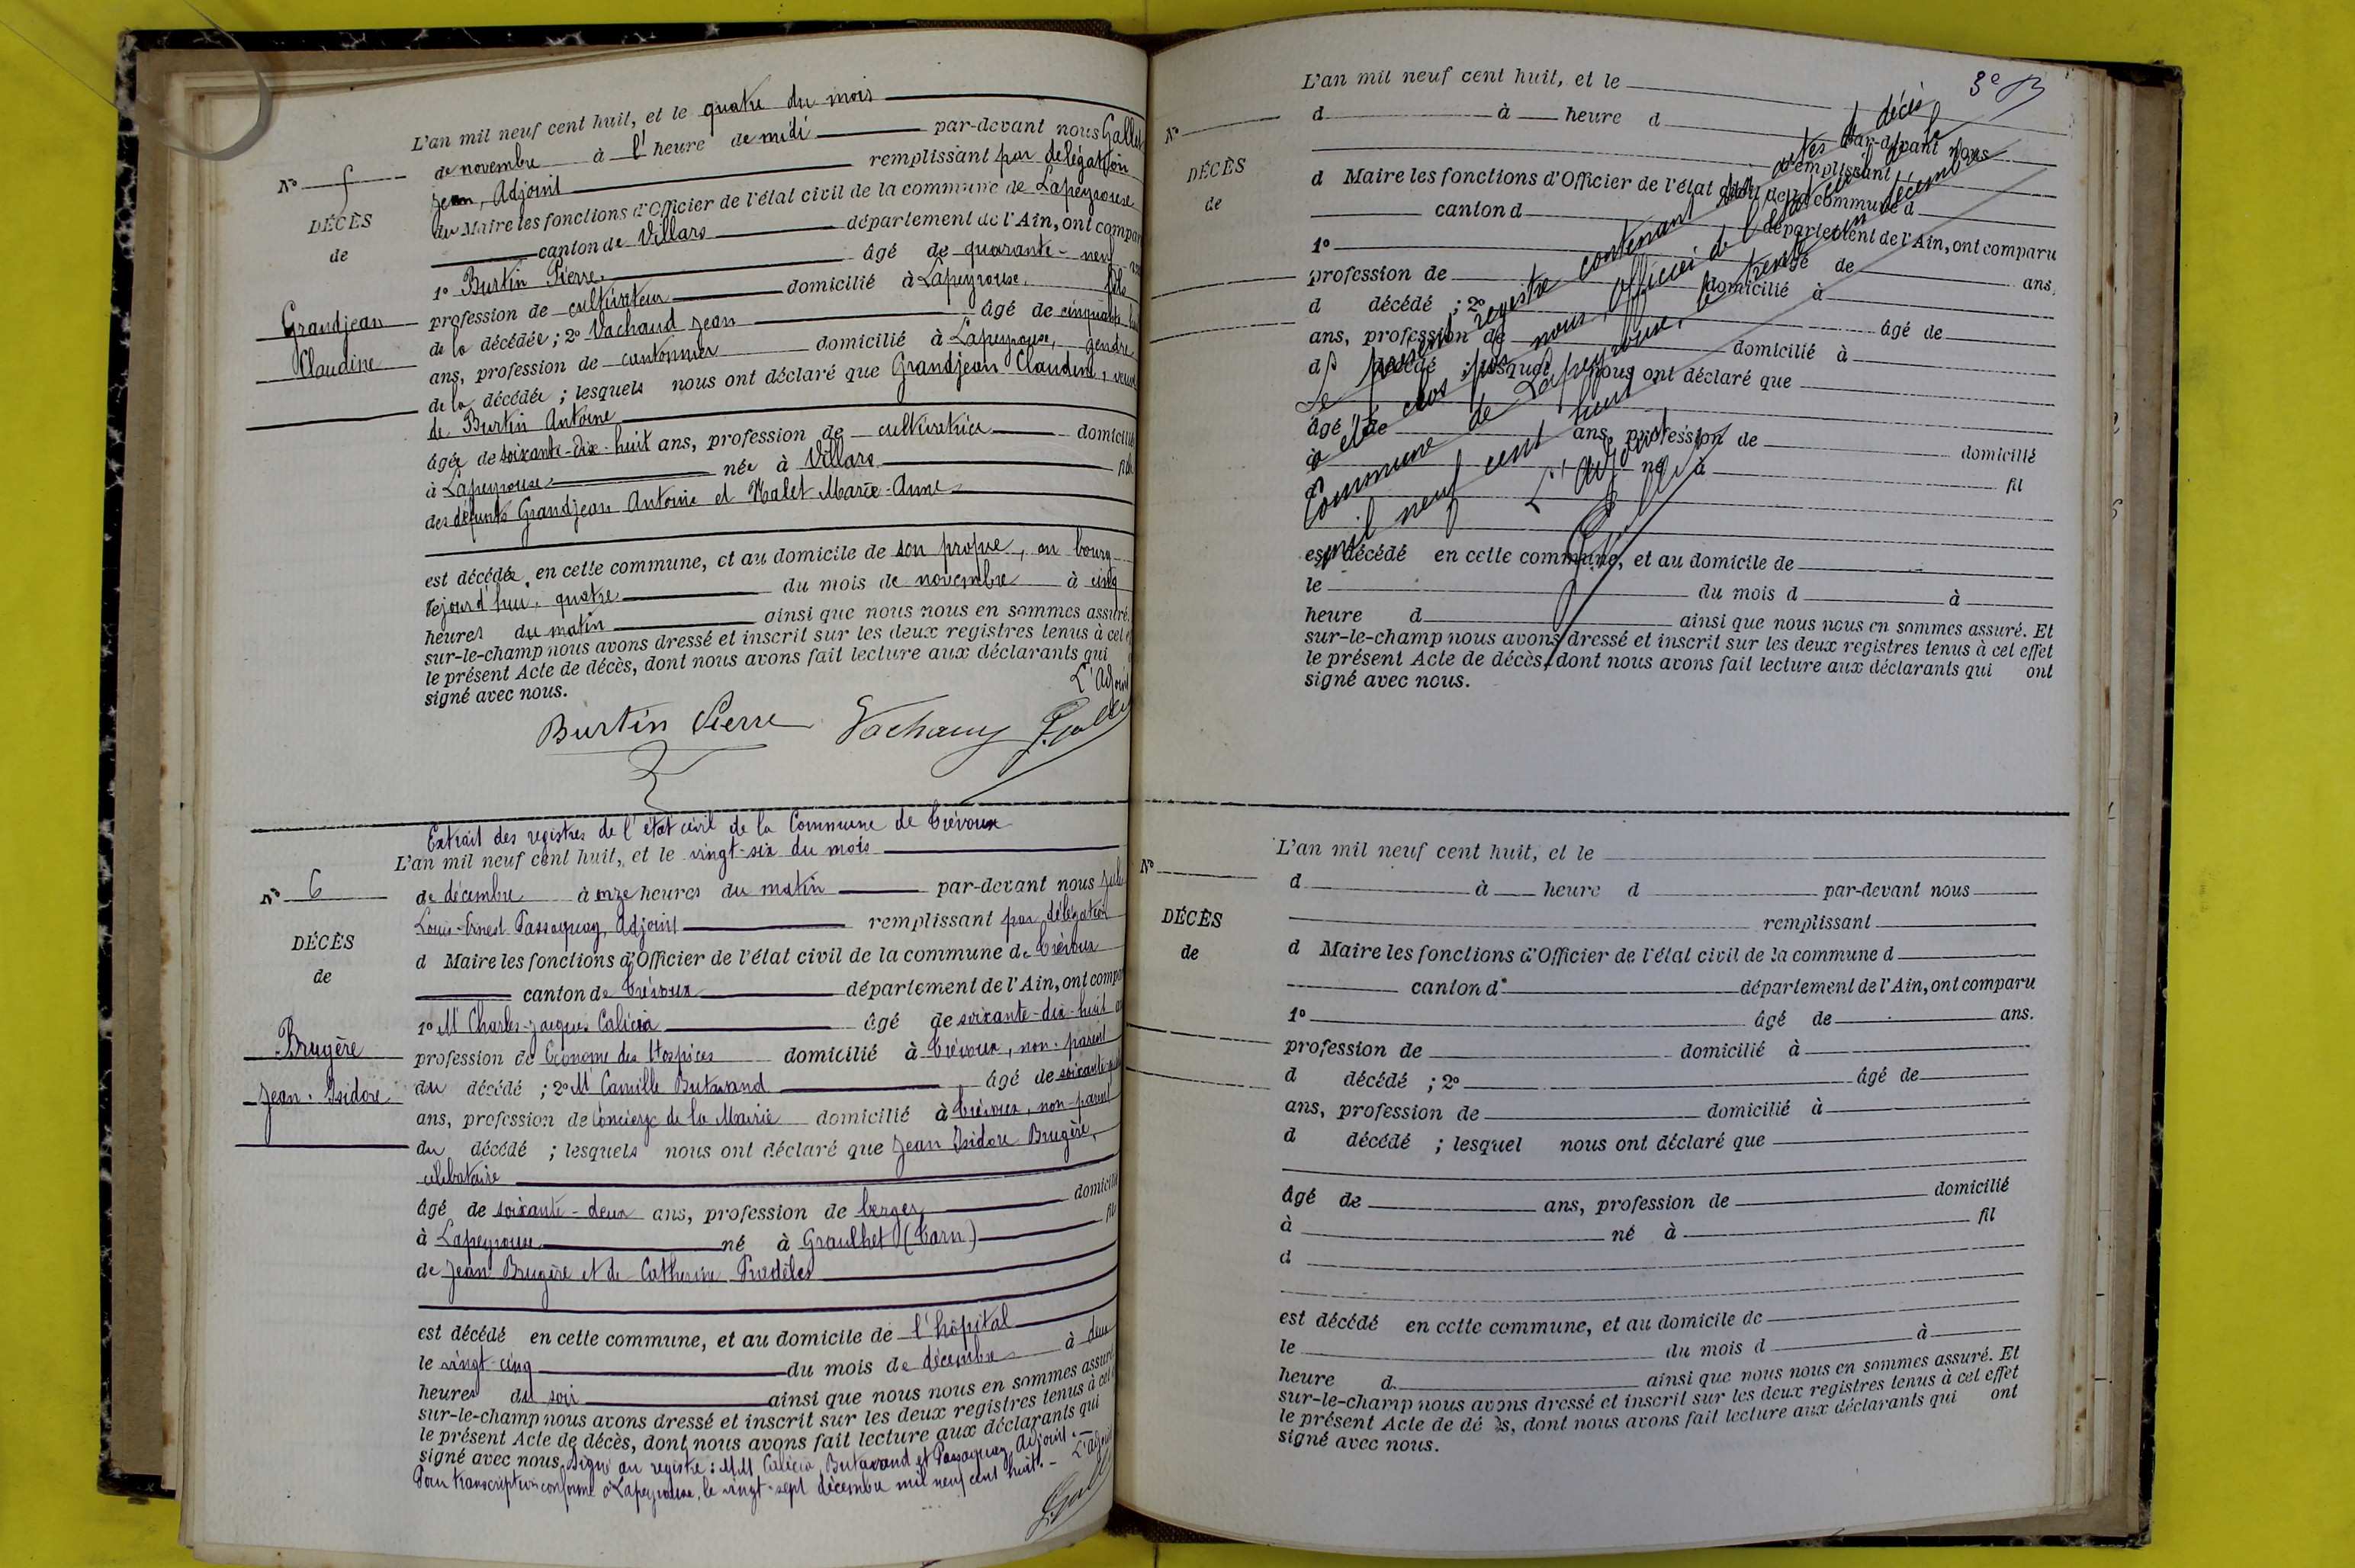 L'an mil neuf cent huit, et le quatre du mois
de novembre à l'heure de midi par-devant nous Gallet
N° 5
Jean, Adjoint remplissant par délégation
du Maire les fonctions d'Officier de l'état civil de la commune de Lapeyrouse
DÉCÈS
canton de Villars département de l'Ain, ont compar
de
1° Burtin Pierre, âgé de quarante-neuf
profession de cultivateur domicilié à Lapeyrouse, fils
Grandjean
de la décédée ; 2° Vachaud Jean âgé de cinquante
Claudine
ans, profession de cantonnier domicilié à Lapeyrouse, gendre
de la décédée ; lesquels nous ont déclaré que Grandjean Claudine, veuve
de Burtin Antoine
âgée de soixante-dix-huit ans, profession de cultivatrice domicilié
à Lapeyrouse née à Villars fille
des défunts Grandjean Antoine et Marie-Anne
est décédée en cette commune, et au domicile de son propre, au bourg
cejourd'hui, quatre du mois de novembre à cinq
heures du matin ainsi que nous nous en sommes assuré.
sur-le-champ nous avons dressé et inscrit sur les deux registres tenus à cet
le présent Acte de décès, dont nous avons fait lecture aux déclarants qui
signé avec nous. L'Adjoint
Burtin Pierre Vachaud J. Gallet
Extrait des registres de l'état civil de la Commune de Trévoux
L'an mil neuf cent huit, et le vingt-six du mois
N° 6
de décembre à onze heures du matin par-devant nous Jules
Louis-Ernest Passaquay, Adjoint remplissant par délégation
DÉCÈS
d Maire les fonctions d'Officier de l'état civil de la commune de Trévoux
de
canton de Trévoux département de l'Ain, ont compar
1° Mr Charles-Jacques Calicia âgé de soixante-dix-huit a
Brugère
profession de Econome des Hospices domicilié à Trévoux, non-parent
Jean-Isidore
du décédé ; 2° Mr Camille Butavand âgé de soixante
ans, profession de Concierge de la Mairie domicilié à Trévoux, non-parent
du décédé ; lesquels nous ont déclaré que Jean Isidore Brugère,
célibataire
âgé de soixante-deux ans, profession de berger domicilié
à Lapeyrouse né à Graulhet (Tarn) fil
de Jean Brugère et de Catherine
est décédé en cette commune, et au domicile de l'hôpital
le vingt-cinq du mois de décembre à deux
heures du soir ainsi que nous nous en sommes assuré
sur-le-champ nous avons dressé et inscrit sur les deux registres tenus à cet
le présent Acte de décès, dont nous avons fait lecture aux déclarants qui
signé avec nous. Signé au registre : MM. Calicia, Butavand et Passaquay, Adjoint.
Pour transcription conforme à Lapeyrouse, le vingt-sept décembre mil neuf cent huit. - L'Adjoint
J. Gallet
3e
L'an mil neuf cent huit, et le
N° d à heure d par-devant nous
remplissant
DÉCÈS
d Maire les fonctions d'Officier de l'état civil de la commune d
de
canton d département de l'Ain, ont comparu
1° âgé de ans,
profession de domicilié à
d décédé ; 2° âgé de
ans, profession de domicilié à
d décédé ; lesquel nous ont déclaré que
âgé de ans, profession de domicilié
à né à fil
d
est décédé en cette commune, et au domicile de
le du mois d à
heure d ainsi que nous nous en sommes assuré. Et
sur-le-champ nous avons dressé et inscrit sur les deux registres tenus à cet effet
le présent Acte de décès, dont nous avons fait lecture aux déclarants qui ont
signé avec nous.
Le présent registre contenant six actes de décès
a été clos par nous, officier de l'état civil de la
Commune de Lapeyrouse, le trente un décembre
mil neuf cent huit.
L'Adjoint
J. Gallet
L'an mil neuf cent huit, et le
N°
d à heure d par-devant nous
remplissant
DÉCÈS
de
d Maire les fonctions d'Officier de l'état civil de la commune d
canton d département de l'Ain, ont comparu
1° âgé de ans.
profession de domicilié à
d décédé ; 2° âgé de
ans, profession de domicilié à
d décédé ; lesquel nous ont déclaré que
âgé de ans, profession de domicilié
à né à fil
d
est décédé en cette commune, et au domicile de
le du mois d à
heure d ainsi que nous nous en sommes assuré. Et
sur-le-champ nous avons dressé et inscrit sur les deux registres tenus à cet effet
le présent Acte de dé s, dont nous avons fait lecture aux déclarants qui ont
signé avec nous.